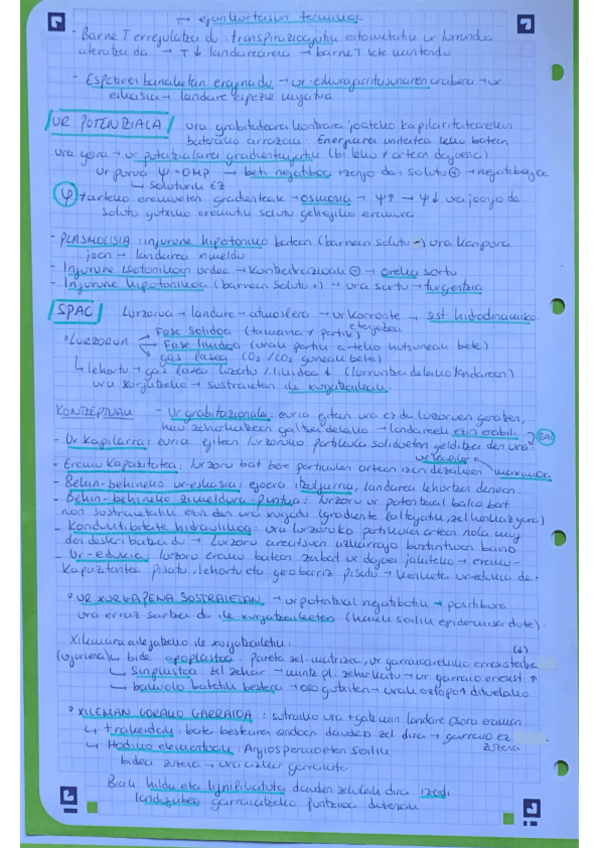 → egonkortasun termikoa
- Barne T erregulatzen du: transpirazioagatik estomatetatik ur lurruna
ateratzen da → T↓ landarearena → barne T kte mantendu
- Espezieen banaketan eragina du → ur-eskuragarritasunaren arabera → ur
eskasia → landare espezie
UR POTENZIALA ura grabitatearen kontrara joateko kapilaritatearekin
batera arrazoia. Energiaren unitatea leku batean
ura gora → ur potentzialaren gradienteagatik (bi leku artean dagoena)
ur purua Ψ = 0 MP → beti negatiboa izango da: solutu ⊕ → negatiboagoa
↳ soluturik EZ
Ψ tarteko eremuen gradienteak → osmosia → Ψ↑ → Ψ↓ ura joango da
solutu gutxiko eremutik solutu gehiagoko eremura
- PLASMOLISIA: ingurune hipotoniko batean (barnean solutu -) ura kanpora
joan → landarea zimeldu
- Ingurune isotonikoan ordea → kontzentrazioak ⊜ → oreka sortu
- Ingurune hipotonikoa (barnean solutu +) → ura sartu → turgentzia
SPAC Lurzorua → landare → atmosfera → ur korronte → sist hidrodinamiko.
° LURZORUA Fase solidoa (tamaina ≠ partik)
Fase likidoa (urak partikula arteko hutsuneak bete)
gas fasea (O₂/CO₂ guneak bete)
↳ lehortu → gas fasea luzatu / likidoa ↓ (lurruntze delako/landarean)
ura xurgatzeko → sustraietan ile xurgatzaileak.
KONTZEPTUAK - Ur grabitazionala: euria egitean ura ez du lurzoruan geratzen,
hau zeharkatzean galtzen delako → landareek ezin erabili.
- Ur kapilarra: euria egitean lurzoruko partikula solidoetan gelditzen den ura. BAI
- Eremu kapazitatea: lurzoru bat bere partikulen artean izan dezakeen ur kapilar maximoa
- Behin-behineko ur-eskasia: egoera itzulgarria, landarea lehortzen denean.
- Behin-behineko zimeldura-puntua: lurzoru ur potentzial balio bat
non sustraietatik ezin den ura xurgatu (gradiente faltagatik, zelula gura)
- Konduktibitate hidraulikoa: ura lurzoruko partikulen artean nola mugi
den deskribatzen du → lurzoru areatsuan azkarrago buztintsuan baino
- Ur-edukia: lurzoru eremu batean zenbat ur dagoen jakiteko → eremu-
kapazitatea pisatu, lehortu eta gero berriz pisatu → kenketa ur-edukia da.
° UR XURGAPENA SUSTRAIETAN → ur potentzial negatibotik → positibora
ura erraz sartzen da ile xurgatzaileetan (hauek soilik epidermisa dute).
Xilemara ailegatzeko ile xurgatzailetik: (6)
(ugariena) ↳ bide apoplastoa: pareta zel-matrizea, ur garraioarekiko erresistentzia
↳ sinplastoa: zel zehar → mintz pl. zeharkatu → ur garraio erresist. ↑
↳ bakuolo batetik bestera → oso gutxitan → urak oztopo + dituelako
° XILEMAN GORAKO GARRAIOA: sutraiko ura + gatz min landare osora eraman
↳ trakeidak: bata bestearen ondoan dauden zel dira → garraio ez zuzena
↳ Hodiko elementuak: Angiospermoetan soilik
bidea zuzena → ura azkar garraiatu
Biak hilda eta lignifikatuta dauden zelulak dira izerdi
landugabea garraiatzeko funtzioa dutenak